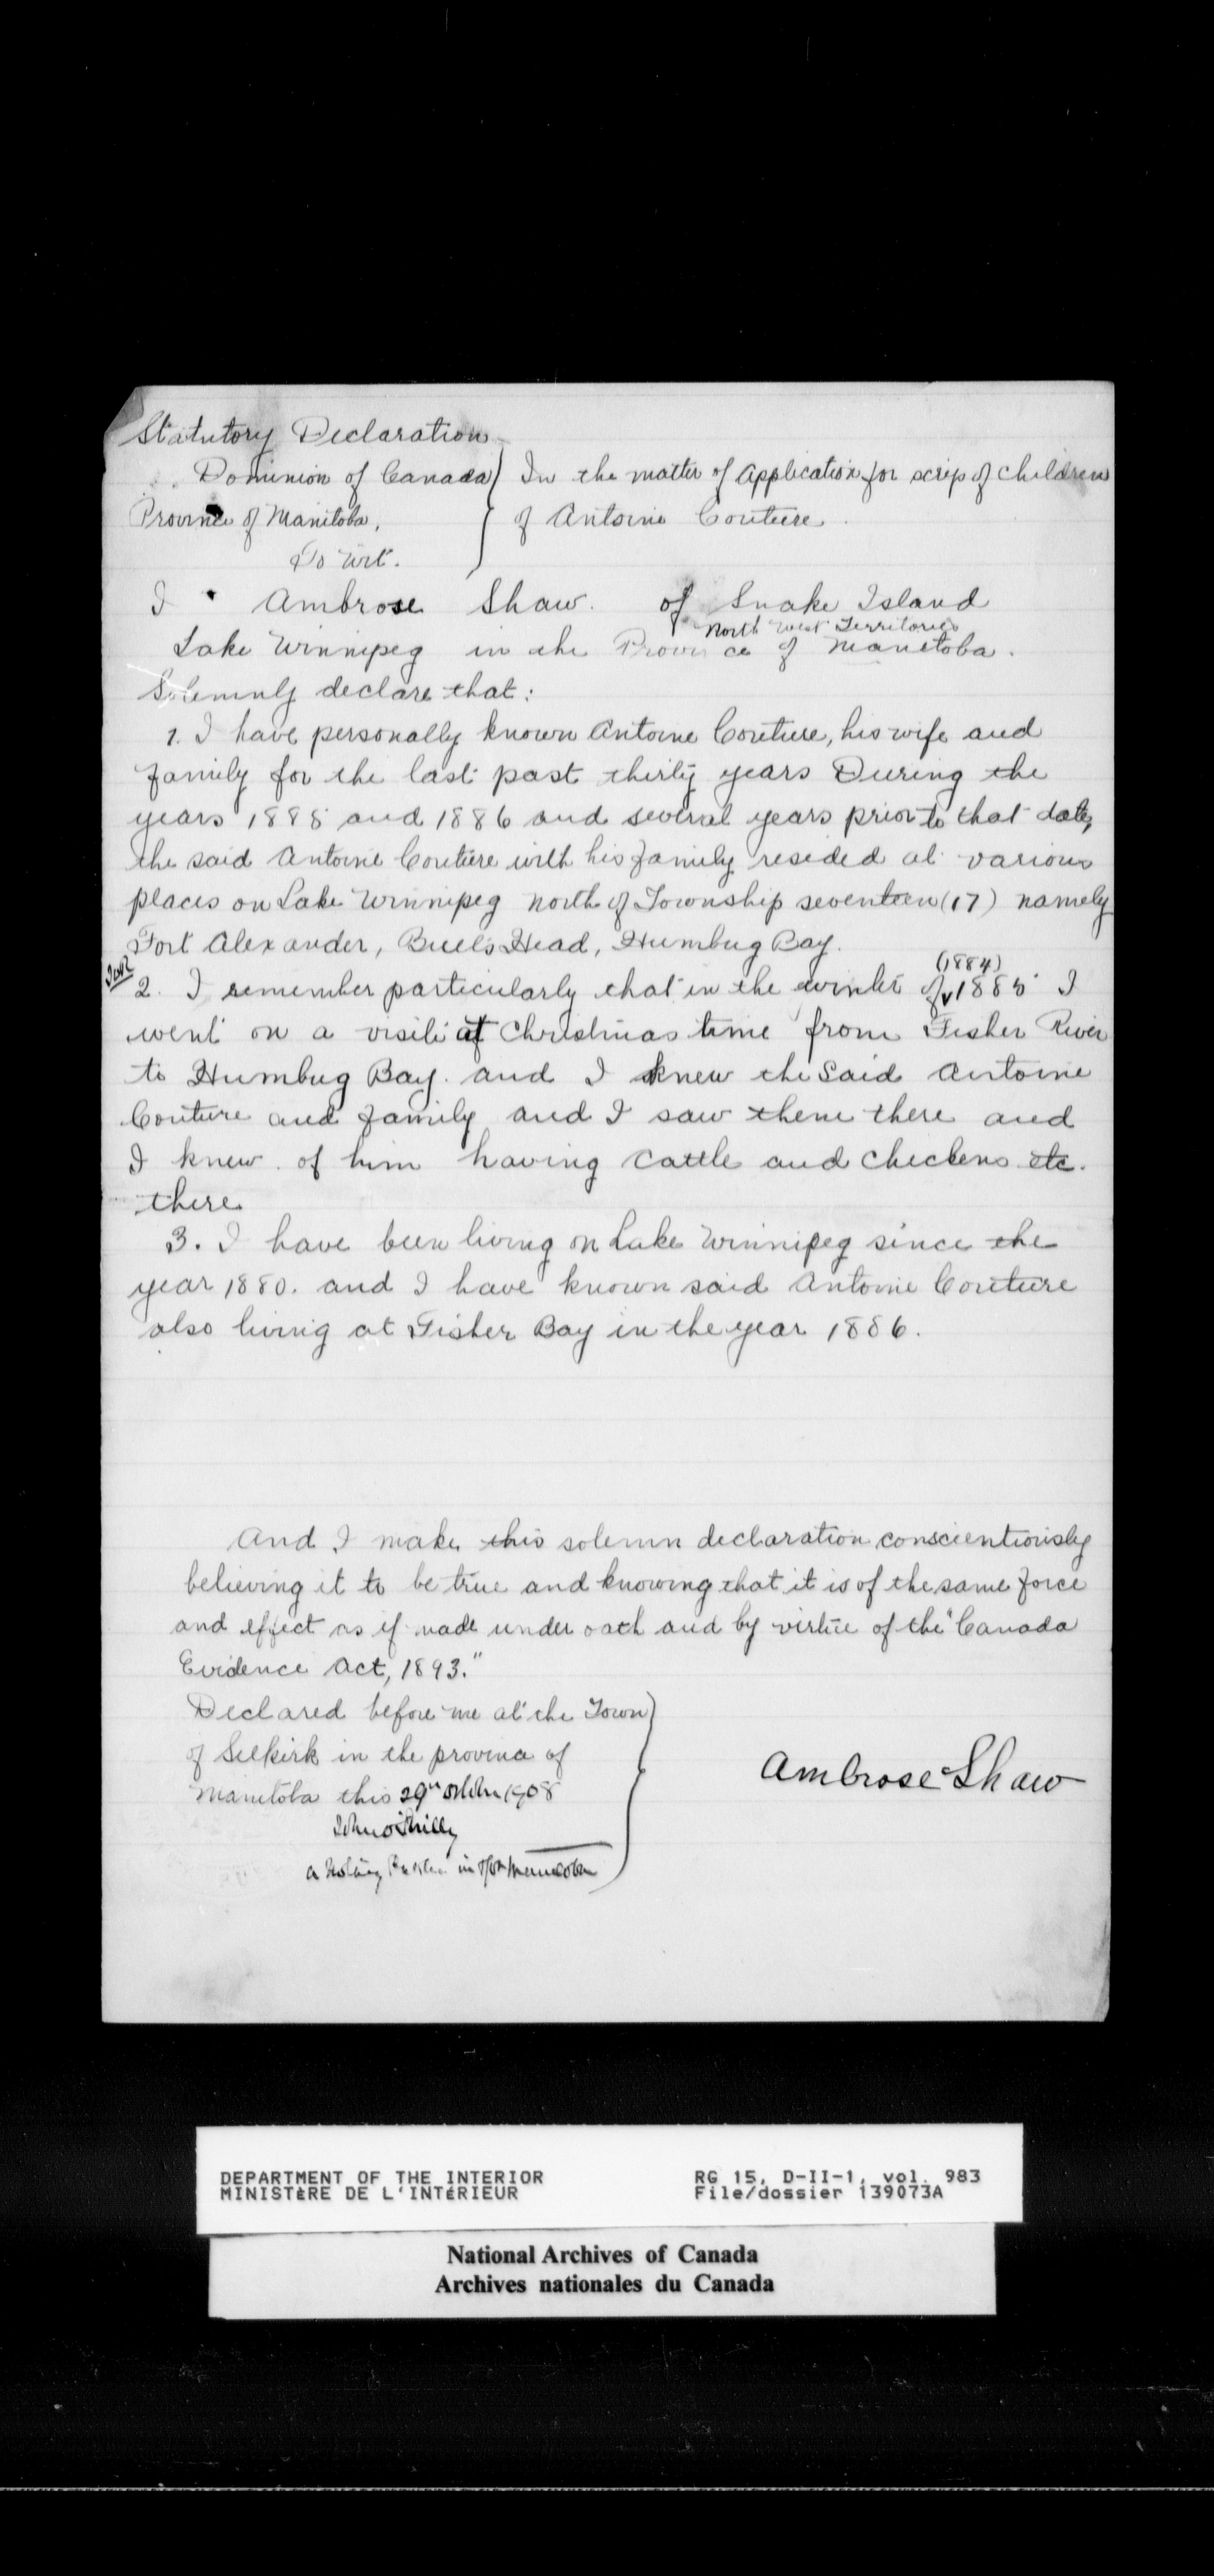 Statutory Declaration
Dominion of Canada
Province of Manitoba,
To Wit.
In the matter of Application for scrip of children
of Antoine Couture.
I Ambrose Shaw. of Snake Island
North West Territories
Lake Winnipeg in the Province of Manitoba.
Solemnly declare that:
1. I have personally known Antoine Couture, his wife and
family for the last past thirty years During the
years 1885 and 1886 and several years prior to that date,
the said Antoine Couture with his family resided at various
places on Lake Winnipeg North of Township seventeen (17) namely
Fort Alexander, Bulls Head, Humbug Bay.
(1884)
2. I remember particularly that in the winter of 1885 I
went on a visit at Christmas time from Fisher River
to Humbug Bay. and I knew the Said Antoine
Couture and family and I saw them there and
I knew of him having Cattle and Chickens etc.
there
3. I have been living on Lake Winnipeg since the
year 1880. and I have known said Antoine Couture
also living at Fisher Bay in the year 1886.
And I make this solemn declaration conscientiously
believing it to be true and knowing that it is of the same force
and effect as if made under oath and by virtue of the "Canada
Evidence Act, 1893."
Declared before me at the Town
of Selkirk in the province of
Manitoba this 29th October 1908
Ambrose Shaw
a Notary Public in & for Manitoba
DEPARTMENT OF THE INTERIOR
MINISTÈRE DE L'INTÉRIEUR
RG 15, D-II-1, vol. 983
File/dossier 139073A
National Archives of Canada
Archives nationales du Canada